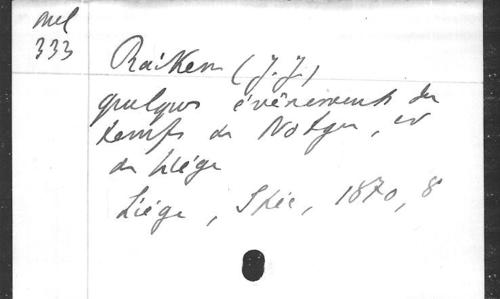 mel
333
Raikem (J. J.)
quelques événements du
temps de Notger, év
de Liége
Liége, 1870, 8